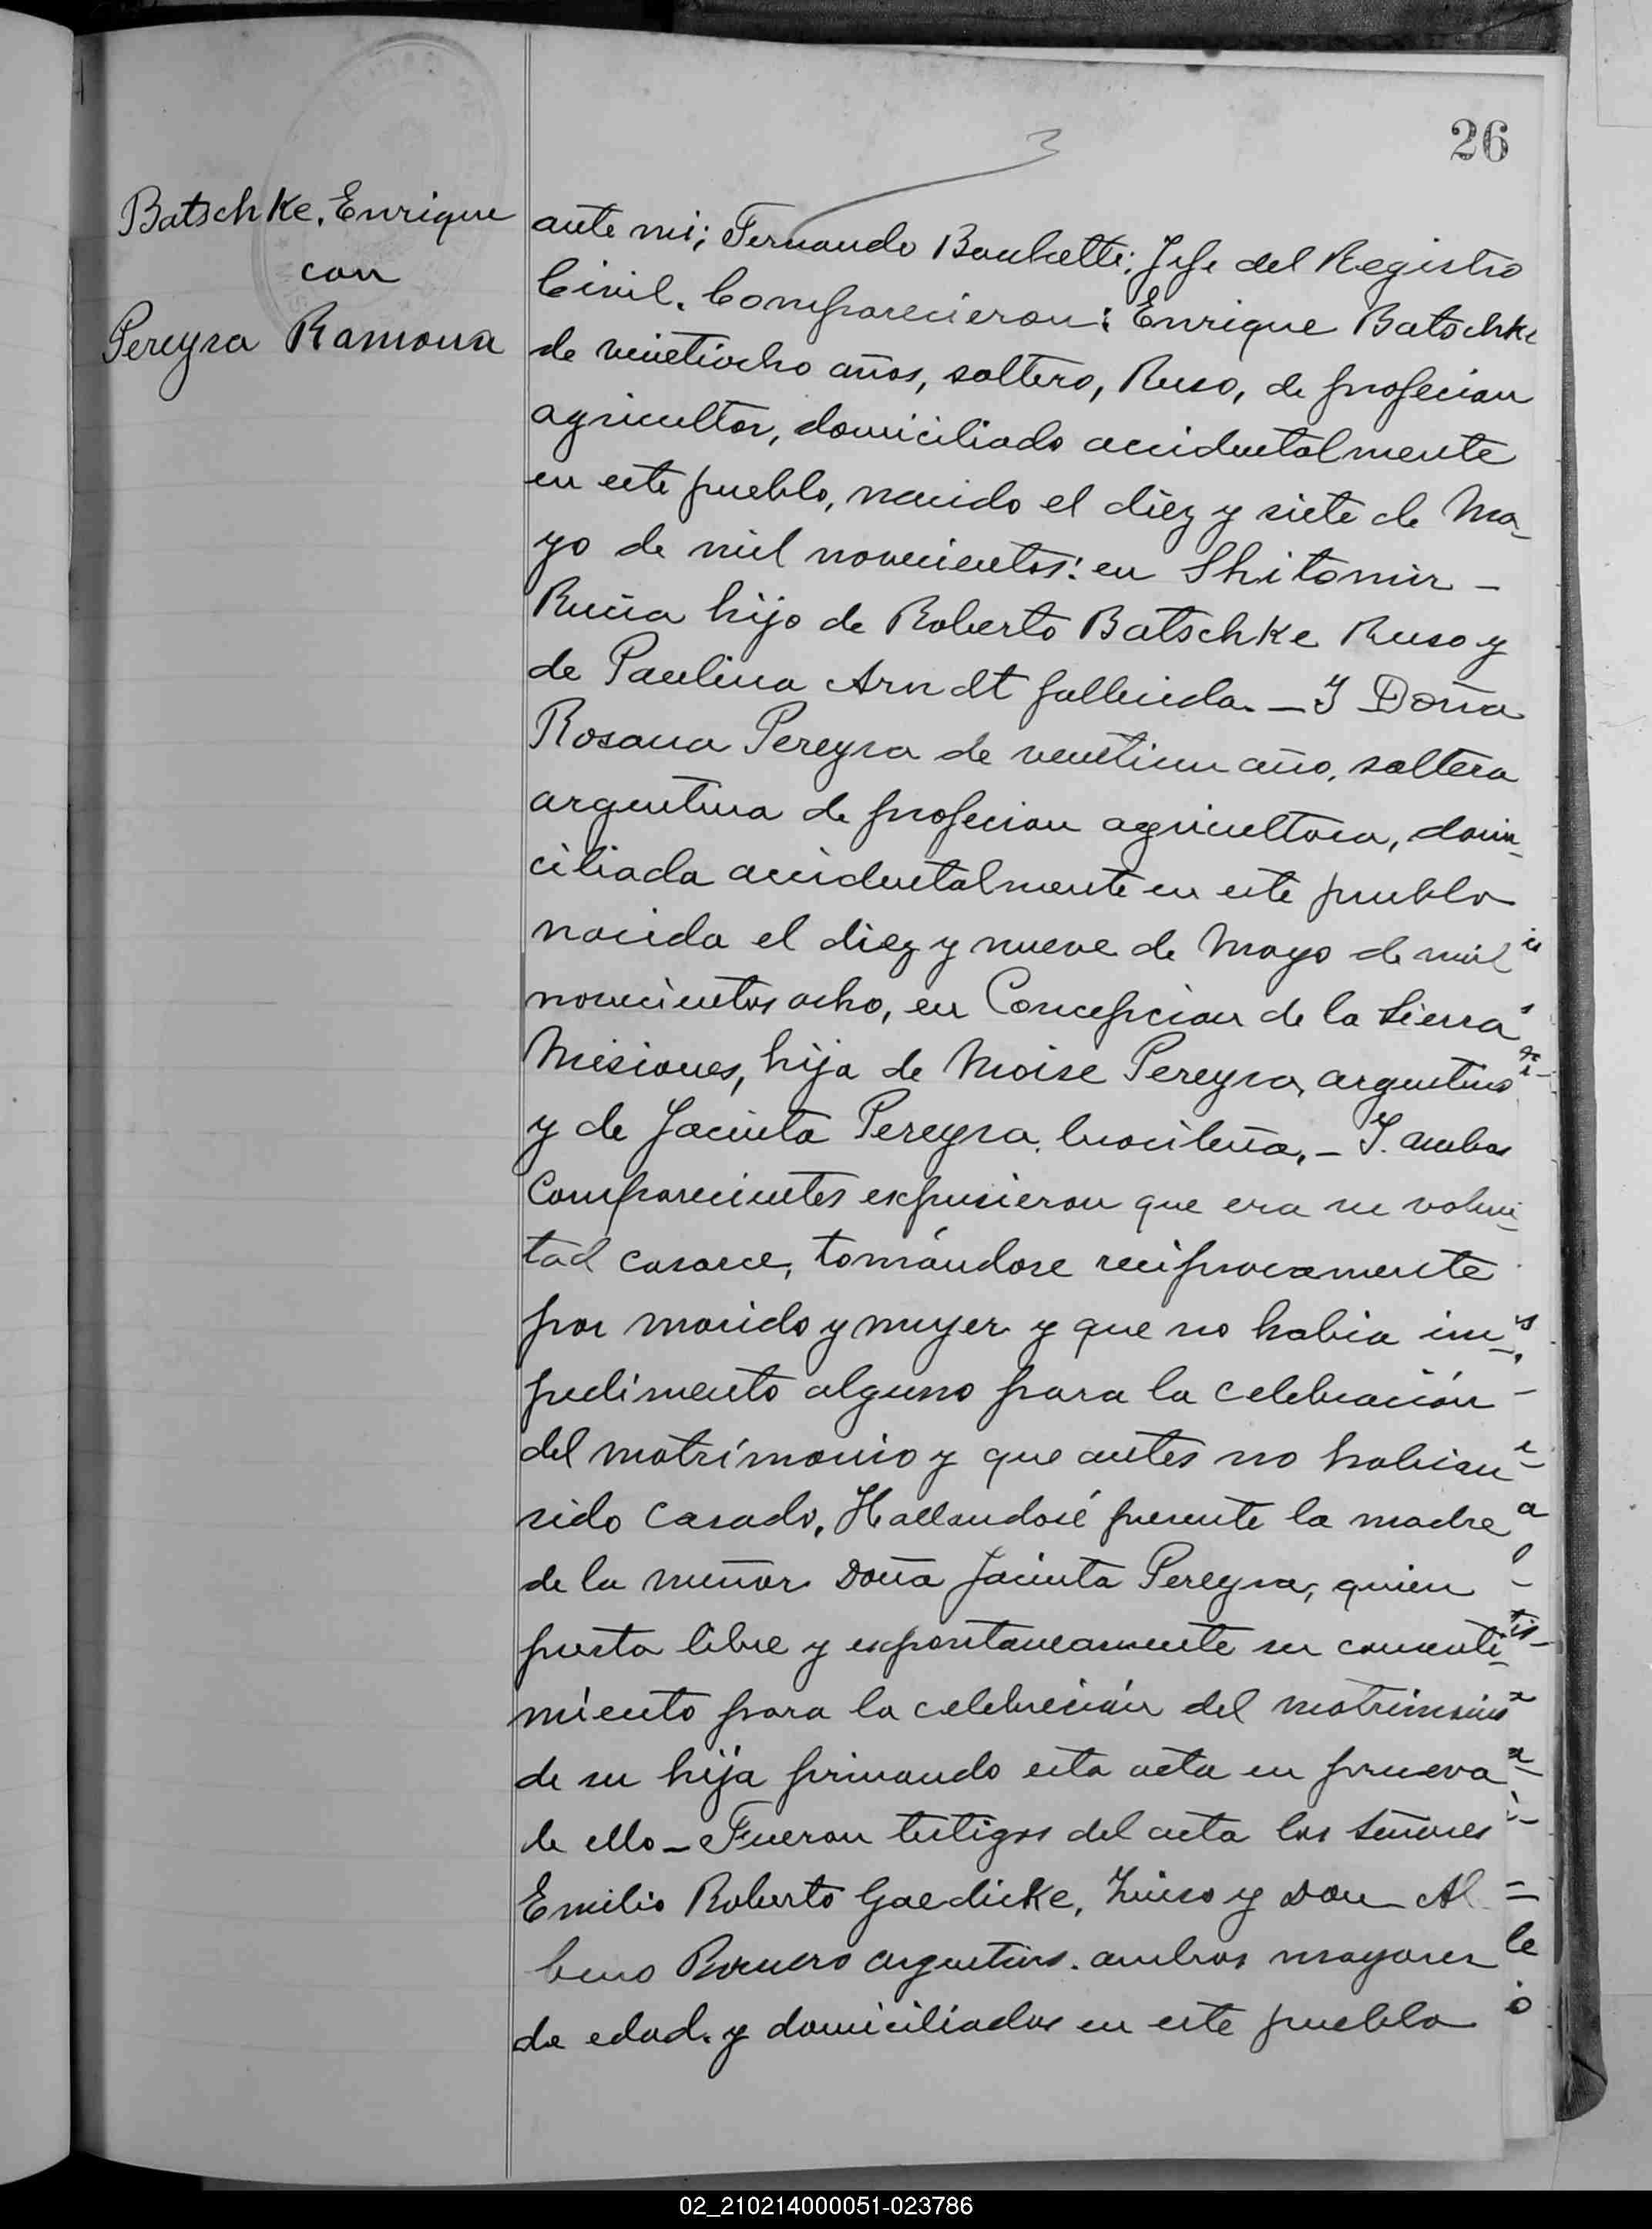 26
3
Batschke, Enrique
con
Pereyra Ramona
ante mi; Fernando Jefe del Registro
Civil. Comparecieron: Enrique Batschke
de veintiocho años, soltero, Ruso, de profecion
agricultor, domiciliado accidentalmente
en este pueblo, nacido el diez y siete de Ma-
yo de mil novecientos: en Shitomir -
Rusia hijo de Roberto Batschke Ruso y
de Paulina Arndt fallecida. - Y Doña
Rosana Pereyra de veintiun año, soltera
argentina de profecion agricultora, domi-
ciliada accidentalmente en este pueblo
nacida el diez y nueve de Mayo de mil
novecientos ocho, en Concepcion de la Sierra
Misiones, hija de Moise Pereyra, argentino
y de Jacinta Pereyra, brasileña. - Y. ambos
Comparecientes expusieron que era su volun-
tad casarce, tomándose reciprocamente
por marido y mujer y que no habia im-
pedimento alguno para la celebración
del matrimonio y que antes no habian
sido casado. Hallandosé presente la madre
de la menor Doña Jacinta Pereyra, quien
presta libre y expontaneamente su consenti-
miento para la celebrición del matrimonio
de su hija firmando esta acta en prueva
de ello - Fueron testigos del acta los Señores
Emilio Roberto Gaedicke, y Don Al
bino argentino. ambos mayores
de edad. y domiciliados en este pueblo
02_210214000051-023786